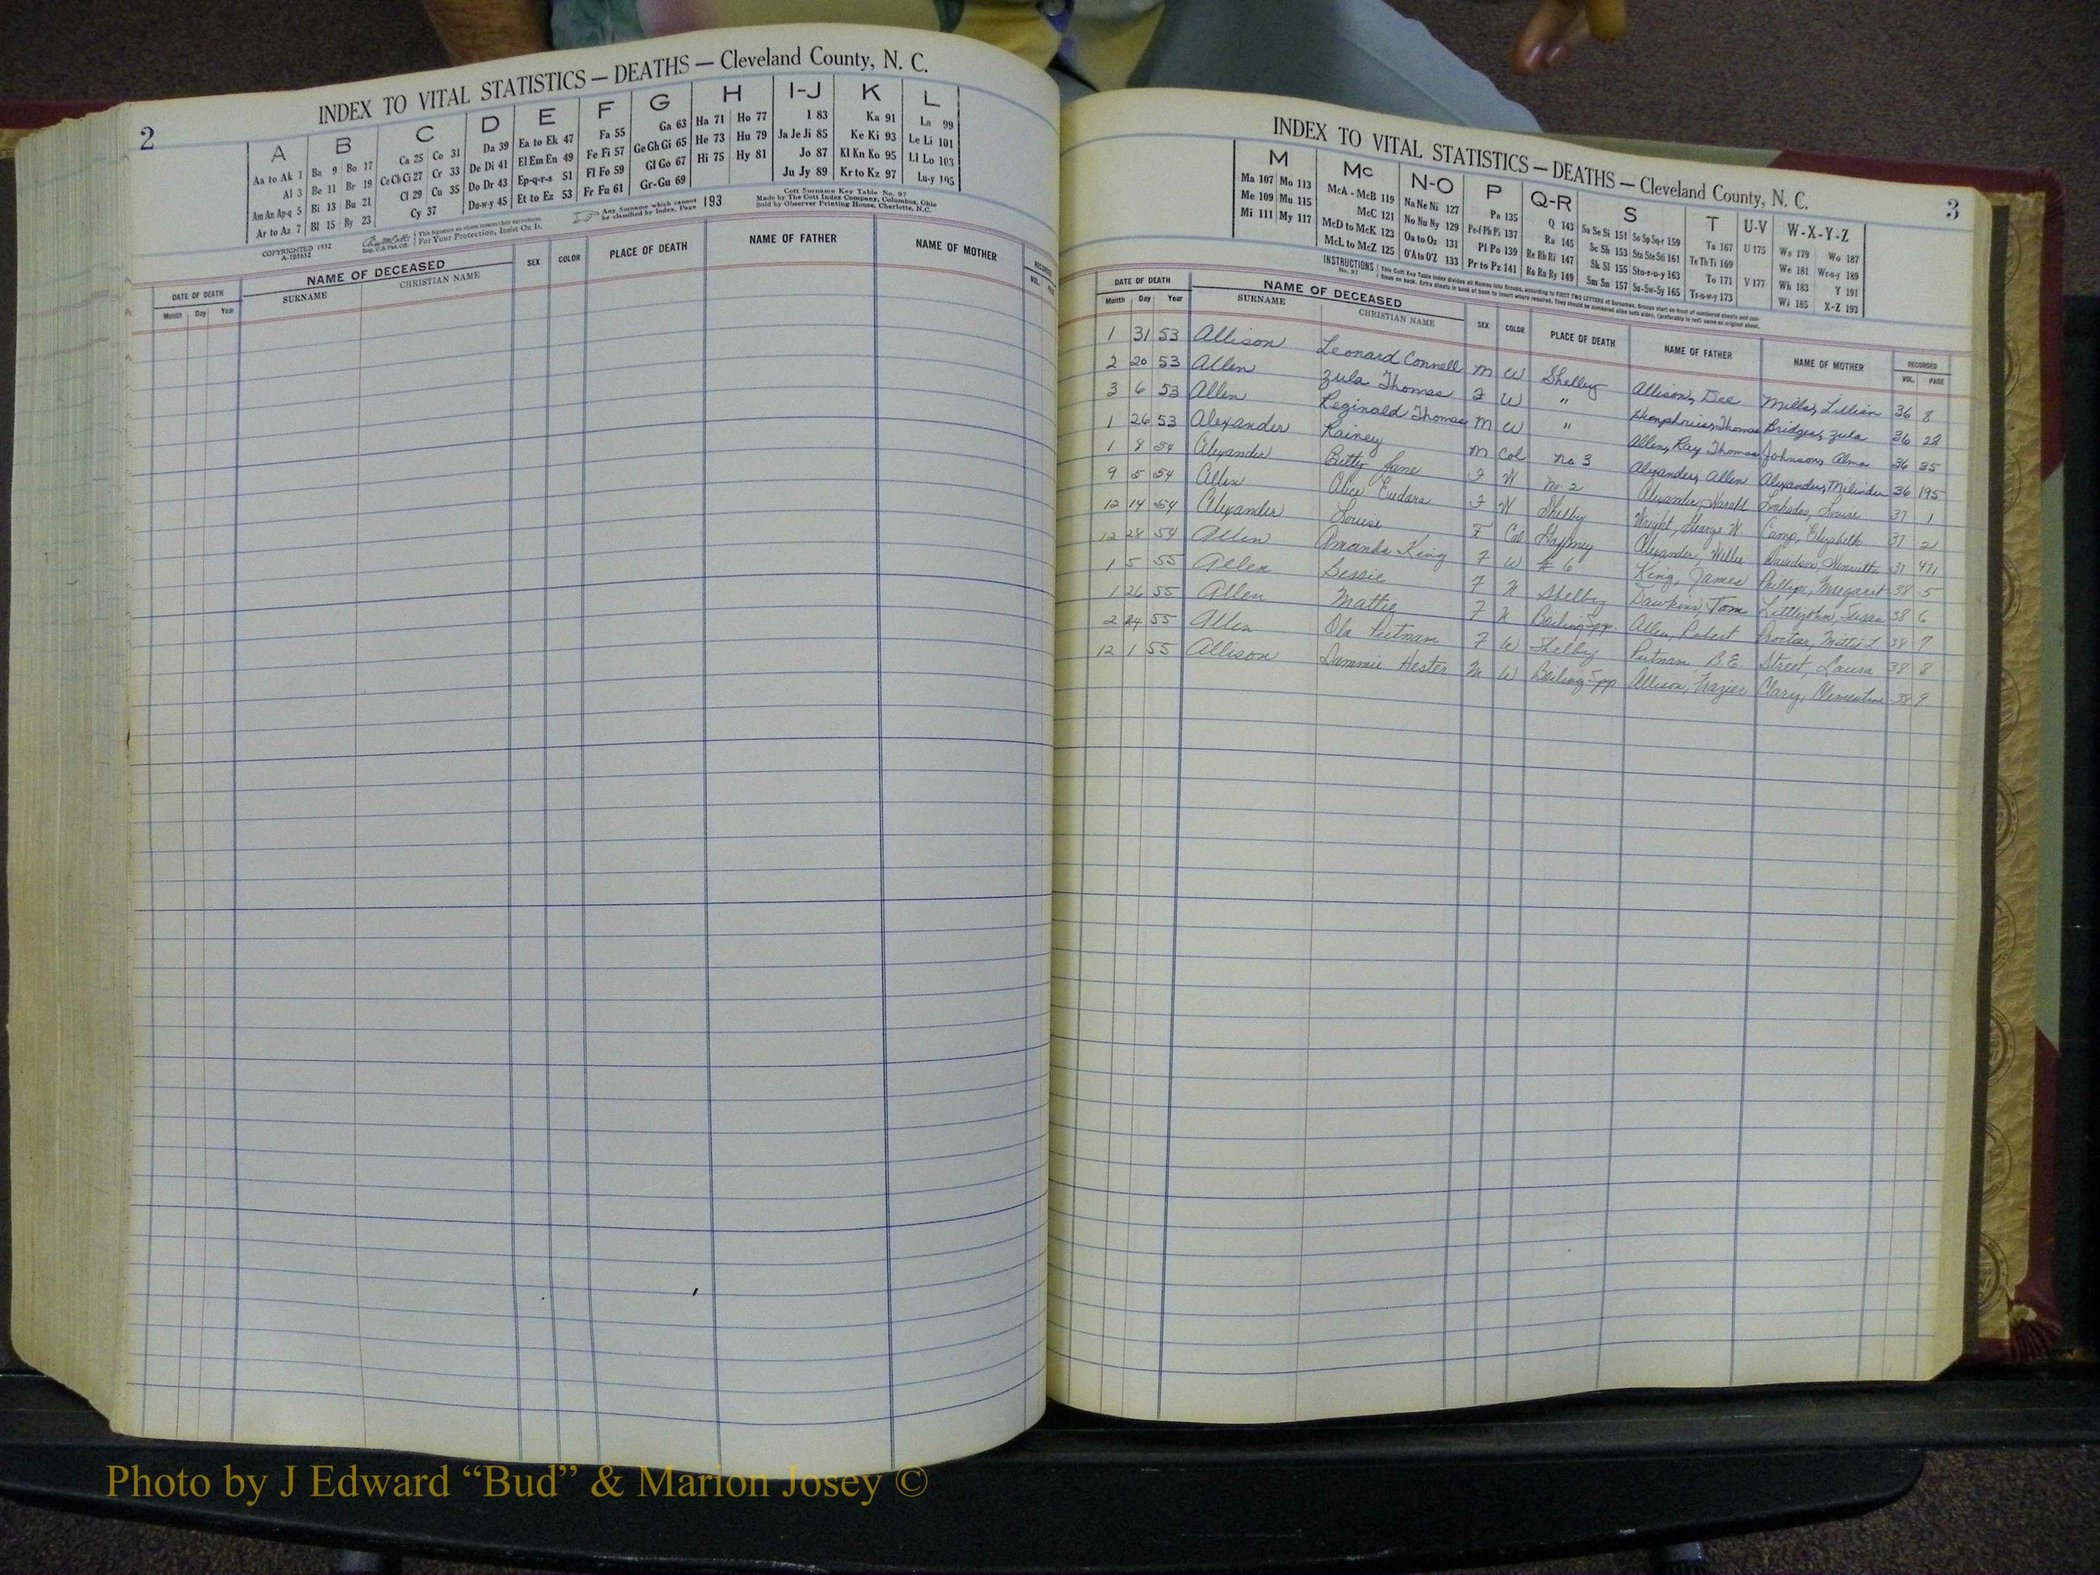 2
INDEX TO VITAL STATISTICS — DEATHS — Cleveland County, N. C.
A B C D E F G H I-J K L
Aa to Ak 1 Ba 9 Bo 17 Ca 25 Co 31 Da 39 Ea to Ek 47 Fa 55 Ga 63 Ha 71 Ho 77 I 83 Ka 91 La 99
Al 3 Be 11 Br 19 Ce Ch Ci 27 Cr 33 De Di 41 El Em En 49 Fe Fi 57 Ge Gh Gi 65 He 73 Hu 79 Ja Je Ji 85 Ke Ki 93 Le Li 101
Am An Ap-q 5 Bi 13 Bu 21 Cl 29 Cu 35 Do Dr 43 Ep-q-r-s 51 Fl Fo 59 Gl Go 67 Hi 75 Hy 81 Jo 87 Kl Kn Ko 95 Ll Lo 103
Ar to Az 7 Bl 15 By 23 Cy 37 Du-w-y 45 Et to Ez 53 Fr Fu 61 Gr-Gu 69 Ju Jy 89 Kr to Kz 97 Lu-y 105
COPYRIGHTED 1932
A-103632
For Your Protection, Insist On It.
Any Surname which cannot be classified by Index, Page 193
Cott Surname Key Table No. 97
Made by The Cott Index Company, Columbus, Ohio
Sold by Observer Printing House, Charlotte, N.C.
DATE OF DEATH NAME OF DECEASED SEX COLOR PLACE OF DEATH NAME OF FATHER NAME OF MOTHER RECORDED
Month Day Year SURNAME CHRISTIAN NAME VOL.
INDEX TO VITAL STATISTICS — DEATHS — Cleveland County, N. C.
3
M Mc N-O P Q-R S T U-V W-X-Y-Z
Ma 107 Mo 113 McA - McB 119 Na Ne Ni 127 Pa 135 Q 143 Sa Se Si 151 So Sp Sq-r 159 Ta 167 U 175 Wa 179 Wo 187
Me 109 Mu 115 McC 121 No Nu Ny 129 Pe-f Ph Pi 137 Ra 145 Sc Sh 153 Sta Ste Sti 161 Te Th Ti 169 We 181 Wr-u-y 189
Mi 111 My 117 McD to McK 123 Oa to Oz 131 Pl Po 139 Re Rh Ri 147 Sk Sl 155 Sto-r-u-y 163 To 171 V 177 Wh 183 Y 191
McL to McZ 125 O'A to O'Z 133 Pr to Pz 141 Ro Ru Ry 149 Sm Sn 157 Su-Sw-Sy 165 Tr-u-w-y 173 Wi 185 X-Z 193
INSTRUCTIONS No. 97 This Cott Key Table Index divides all Names into Groups, according to FIRST TWO LETTERS of Surnames. Groups start on front of numbered sheets and continue on back. Extra sheets in back of book to insert where required. They should be numbered alike both sides, (preferably in red) same as original sheet.
DATE OF DEATH NAME OF DECEASED SEX COLOR PLACE OF DEATH NAME OF FATHER NAME OF MOTHER RECORDED
Month Day Year SURNAME CHRISTIAN NAME VOL. PAGE
1 31 53 Allison Leonard Connell M W Shelby Allison, Dee Mills, Lillian 36 8
2 20 53 Allen Zula Thomas F W " Humphries, Thomas Bridges, Zula 36 22
3 6 53 Allen Reginald Thomas M W " Allen, Ray Thomas Johnson, Alma 36 35
1 26 53 Alexander Rainey M Col No 3 Alexander, Allen Alexander, Milinda 36 195
1 8 54 Alexander Betty Jane F W No. 2 Alexander, Harold Louise 37 1
9 5 54 Allen Alice Eudora F W Shelby Wright, George W. Camp, Elizabeth 37 2
12 14 54 Alexander Louise F Col Gaffney Alexander, Willie Davidson, Henrietta 37 471
12 28 54 Allen Amanda King F W # 6 King, James Phillips, Margaret 38 5
1 5 55 Allen Bessie F N Shelby Dawkins, Tom Littlejohn, Susan 38 6
1 26 55 Allen Mattie F N Boiling Spp. Allen, Robert Proctor, 38 7
2 24 55 Allen Ola Putnam F W Shelby Putnam B.E. Street, Laura 38 8
12 1 55 Allison Dummie Hester M W Boiling Spp. Allison, Frazier Clary, Clementine 38 9
Photo by J Edward “Bud” & Marion Josey ©